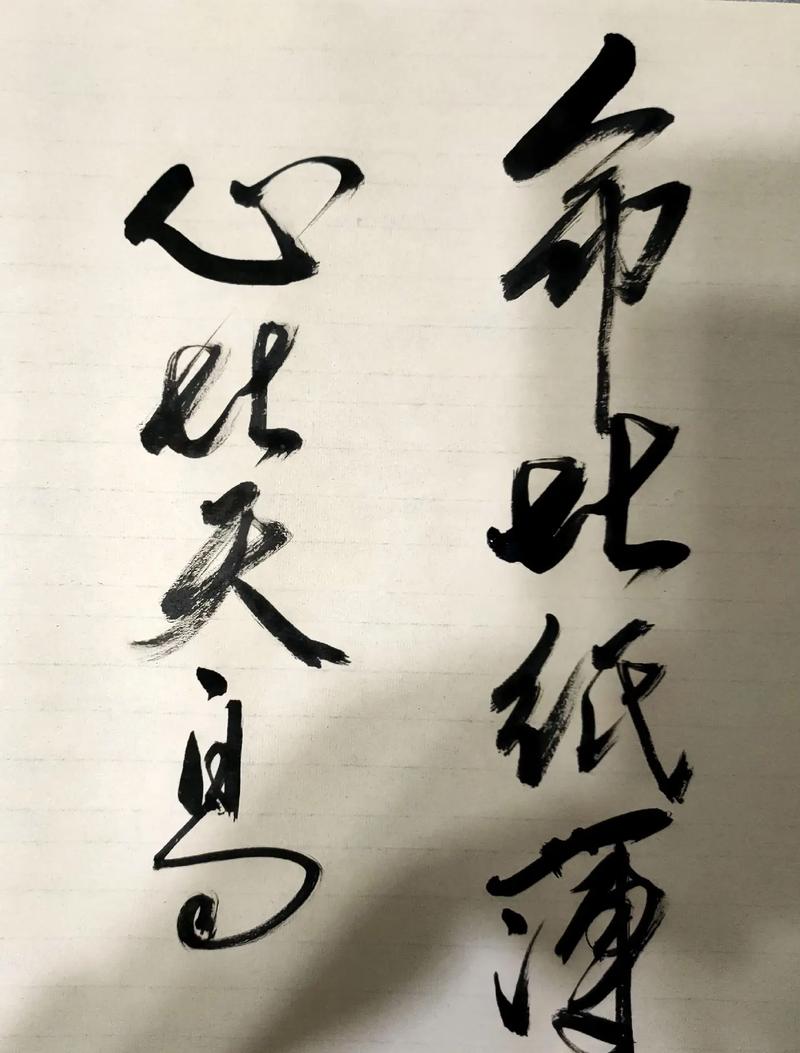 命比纸薄
心比天高